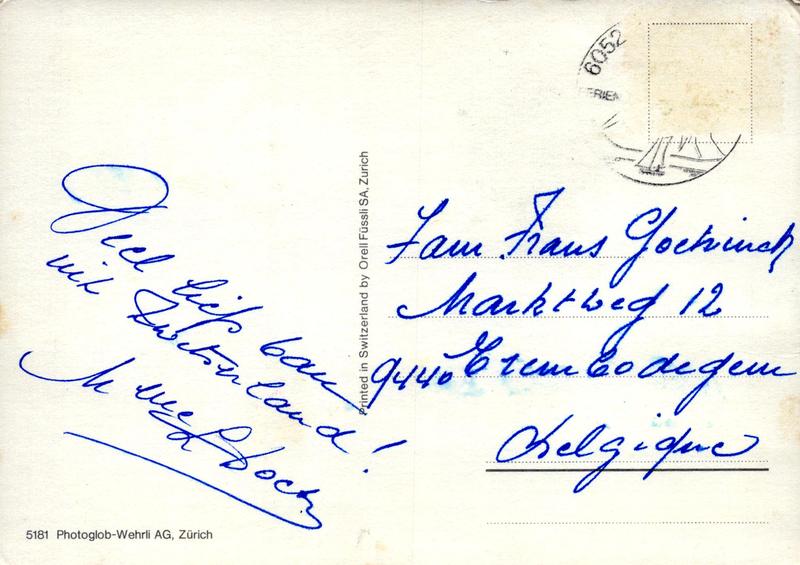 6052
Veel liefs van
uit Zwitserland!
Printed in Switzerland by Orell Füssli SA, Zürich
Fam Frans
Marktweg 12
9440 Erembodegem
Belgique
5181 Photoglob-Wehrli AG, Zürich